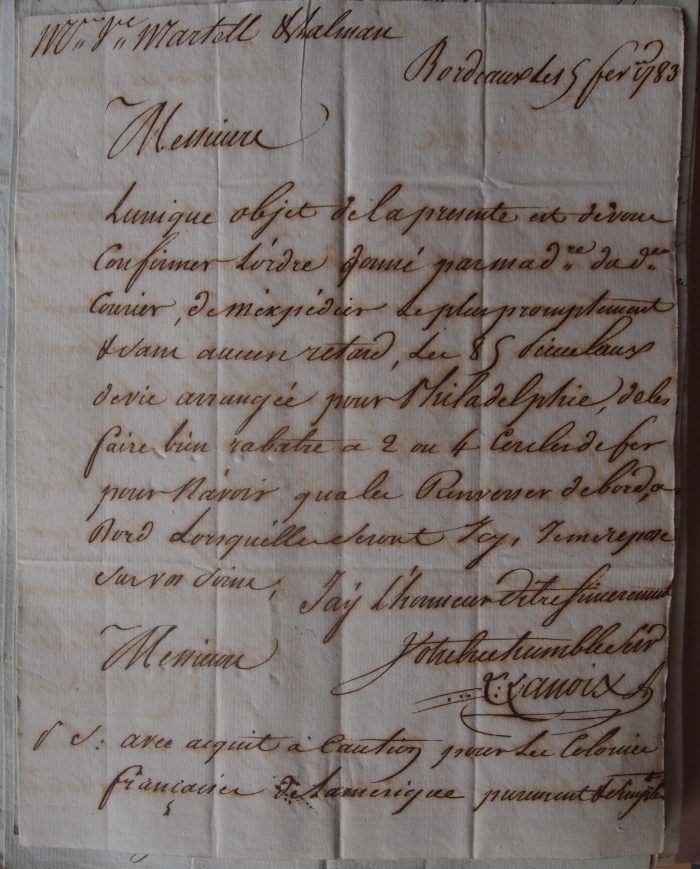 Mrs Ve Martell & Lalman
Bordeaux Les 5 fer. 1783
Messieurs
Lunique objet de la presente est de vous
Confirmer L'ordre donné par ma dre du der
Courier, de m'expédier Le plus promptement
& sans aucun retard, Les 85 Pieces Eaux
devie arrangées pour Philadelphie, de les
faire bien rabatre a 2 ou 4 Cercles de fer
pour N'avoir qua les Renverser de bord, a
Bord Lorsqu'elles seront Icy, Jemerepose
sur vos soins,
Jay L'honneur d'être sincerement
Messieurs
Votre tres humble Serv
Lanoix
P S: avec acquit à Caution pour Les Colonies
françaises de Lamerique purement &